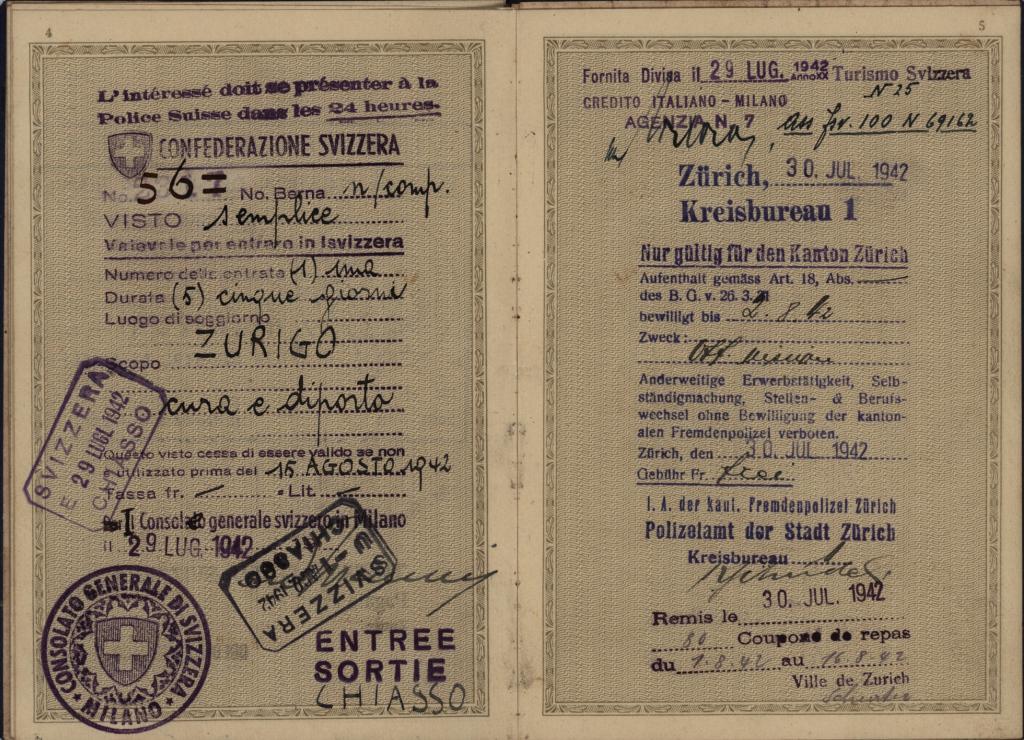 4
L'intéressé doit se présenter à la
Police Suisse dans les 24 heures.
CONFEDERAZIONE SVIZZERA
No. 56= No. Berna n/comp.
VISTO semplice
Valevole per entrare in Isvizzera
Numero delle entrate (1) una
Durata (5) cinque giorni
Luogo di soggiorno
ZURIGO
Scopo
cura e diporto
Questo visto cessa di essere valido se non
utilizzato prima del 15 AGOSTO 1942
Tassa fr. — Lit. —
Il Console generale svizzero in Milano
il 29 LUG. 1942
SVIZZERA
E 29 LUGL 1942
CHIASSO
SVIZZERA
CHIASSO
CONSOLATO GENERALE DI SVIZZERA
MILANO
ENTREE
SORTIE
CHIASSO
5
Fornita Divisa il 29 LUG. 1942 Anno XX Turismo Svizzera
N 25
CREDITO ITALIANO - MILANO
AGENZIA N. 7
fr. 100 N 69162
Zürich, 30. JUL. 1942
Kreisbureau 1
Nur gültig für den Kanton Zürich
Aufenthalt gemäss Art. 18, Abs.
des B. G. v. 26. 3. 31
bewilligt bis 2. 8. 42
Zweck:
Anderweitige Erwerbstätigkeit, Selb-
ständigmachung, Stellen- & Berufs-
wechsel ohne Bewilligung der kanton-
alen Fremdenpolizei verboten.
Zürich, den 30. JUL. 1942
Gebühr Fr. frei
I. A. der kant. Fremdenpolizei Zürich
Polizeiamt der Stadt Zürich
Kreisbureau 1
30. JUL. 1942
Remis le
80 Coupons de repas
du 1.8.42 au 16.8.42
Ville de Zurich